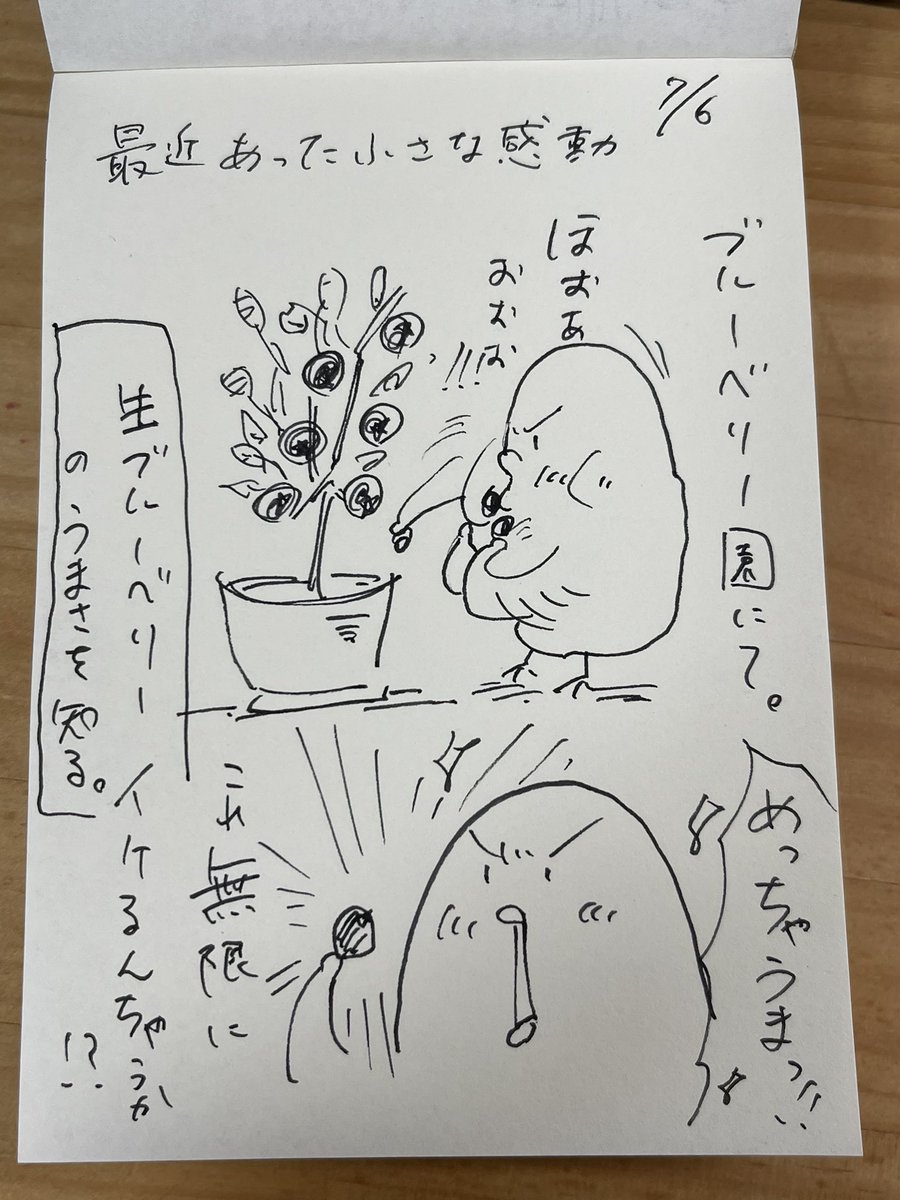 7/6
最近あった小さな感動
ブルーベリー園にて。
ほおあ
おおお!!!
生ブルーベリー
のうまさを知る。
めっちゃうまっ!!
これ無限に
イケるんちゃうか
!?